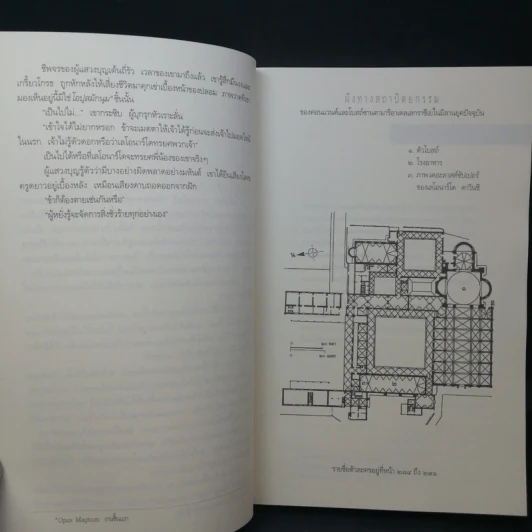 ชีพจรของผู้แสวงบุญเต้นถี่รัว เวลาของเขามาถึงแล้ว เขารู้สึกมึนงงและ
เกรี้ยวโกรธ ถูกหักหลังให้เสี่ยงชีวิตมาคุกเข่าเบื้องหน้าของปลอม ภาพวาดที่เขา
มองเห็นอยู่นี้มิใช่ โอปุสมักนุม* ชิ้นนั้น
"เป็นไปไม่..." เขากระซิบ ผู้บุกรุกหัวเราะลั่น
"เข้าใจได้ไม่ยากหรอก ข้าจะเมตตาให้เจ้าได้รู้ก่อนจะส่งเจ้าไป
ในนรก เจ้าไม่รู้ตัวดอกหรือว่าเลโอนาร์โดทรยศพวกเจ้า"
เป็นไปได้หรือที่เลโอนาร์โดจะทรยศพี่น้องของเขาจริงๆ
ผู้แสวงบุญรู้ตัวว่ามีบางอย่างผิดพลาดอย่างมหันต์ เขาได้ยินเสียงโลหะ
ครูดยาวอยู่เบื้องหลัง เหมือนเสียงดาบถอดออกจากฝัก
"ข้าก็ต้องตายเช่นกันหรือ"
"ผู้หยั่งรู้จะจัดการสิ่งชั่วร้ายทุกอย่างเอง"
*Opus Magnum งานชิ้นเอก
ผังทางสถาปัตยกรรม
ของคอนแวนต์และโบสถ์ซานตามาเรียเดลเลกราซีเอในมิลานยุคปัจจุบัน
๑. ตัวโบสถ์
๒. โรงอาหาร
๓. ภาพเดอะลาสต์ซัปเปอร์
ของเลโอนาร์โด ดาวินชี
รายชื่อตัวละครอยู่ที่หน้า